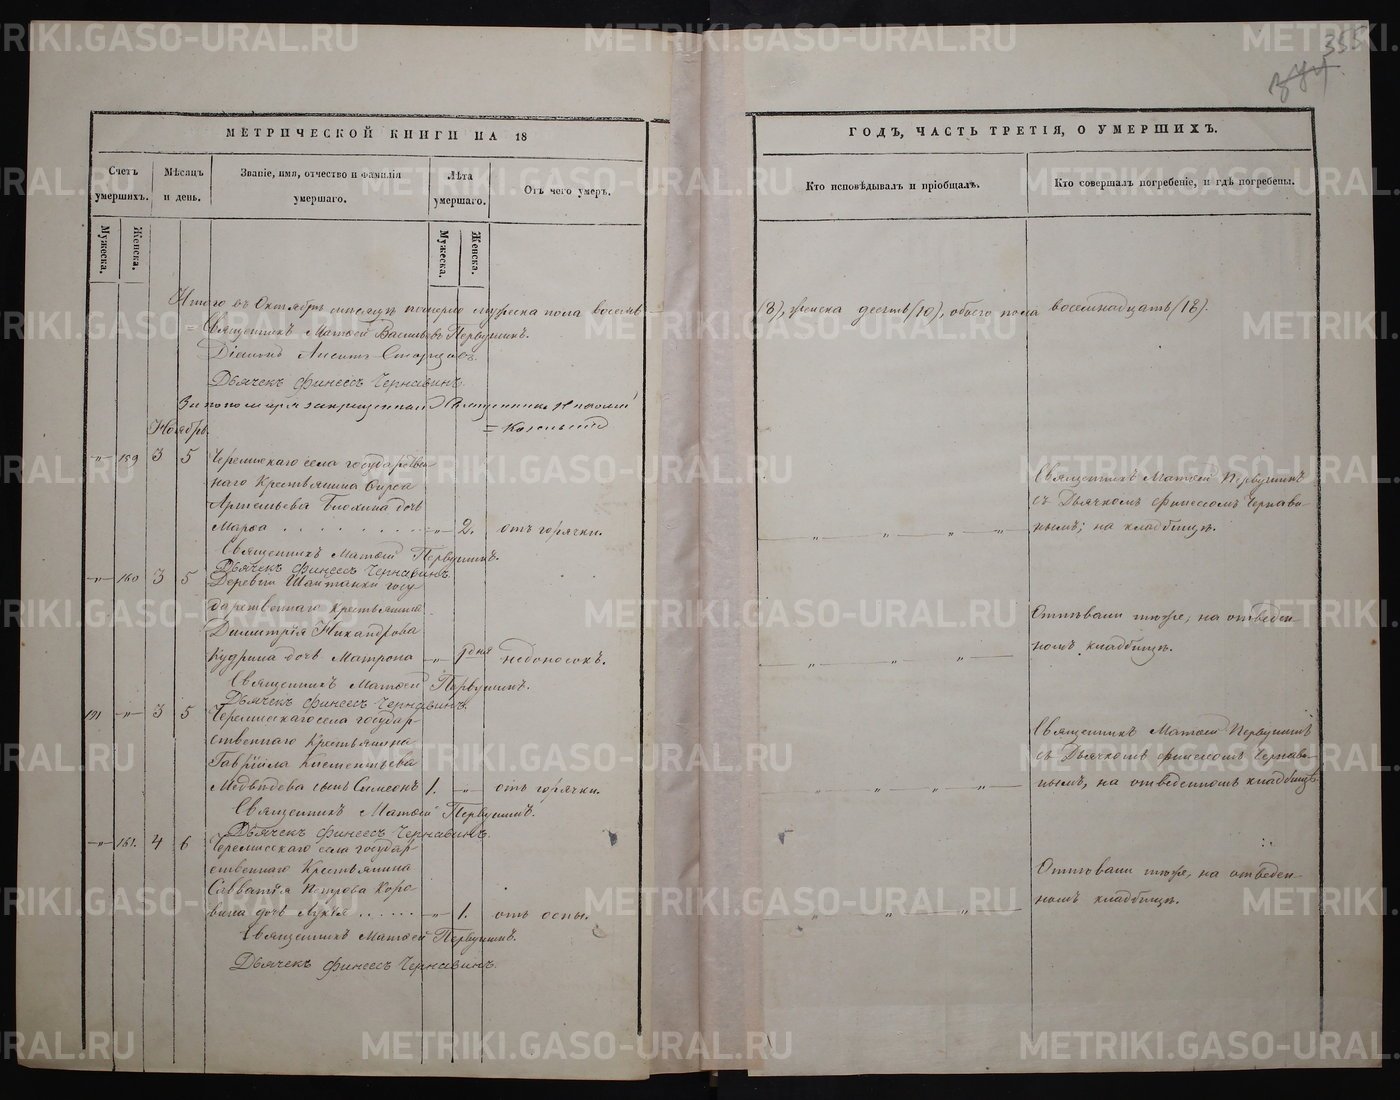 355
МЕТРИЧЕСКОЙ КНИГИ НА 18
Счетъ умершихъ.
Мѣсяцъ и день.
Званіе, имя, отчество и фамилія умершаго.
Лѣта умершаго.
Отъ чего умеръ.
Мужеска.
Женска.
Мужеска.
Женска.
Итого въ Октябрѣ мѣсяцѣ померло мужеска пола восемь
Священникъ Матѳей Васильевъ Первушинъ.
Дьячекъ Финеесъ Чернавинъ.
Ноябрь.
„ 159 3 5 Черемискаго села государствен-
наго Крестьянина Фирса
Артемьева Блохина дочь
Марѳа . . . . . . . . . „ 2. отъ горячки.
Священникъ Матѳей Первушинъ.
Дьячекъ Финеесъ Чернавинъ.
„ 160 3 5 Деревни Шайтанки госу-
дарственнаго крестьянина
Димитрія Никандрова
Кудрина дочь Матрона „ 1 дня недоносокъ.
Священникъ Матѳей Первушинъ.
Дьячекъ Финеесъ Чернавинъ.
191 „ 3 5 Черемисскаго села государ-
ственнаго Крестьянина
Гавріила Климентьева
Медвѣдева сынъ Симеонъ 1. „ отъ горячки.
Священникъ Матѳей Первушинъ.
Дьячекъ Финеесъ Чернавинъ.
„ 161. 4 6 Черемисскаго села государ-
ственнаго Крестьянина
Савватія Петрова Коро-
вина дочь Лукія . . . . . . „ 1. отъ оспы.
Священникъ Матѳей Первушинъ.
Дьячекъ Финеесъ Чернавинъ.
ГОДЪ, ЧАСТЬ ТРЕТІЯ, О УМЕРШИХЪ.
Кто исповѣдывалъ и пріобщалъ.
Кто совершалъ погребеніе, и гдѣ погребены.
(8), женска десять (10), обоего пола восемнадцать (18).
Священникъ Матѳей Первушинъ
съ Дьячкомъ Финеесомъ Чернави-
нымъ; на кладбищѣ.
Отпѣвали тѣже, на отведен-
номъ кладбищѣ.
Священникъ Матѳей Первушинъ
съ Дьячкомъ Финеесомъ Чернави-
нымъ, на отведенномъ кладбищѣ.
Отпѣвали тѣже, на отведен-
номъ кладбищѣ.
METRIKI.GASO-URAL.RU